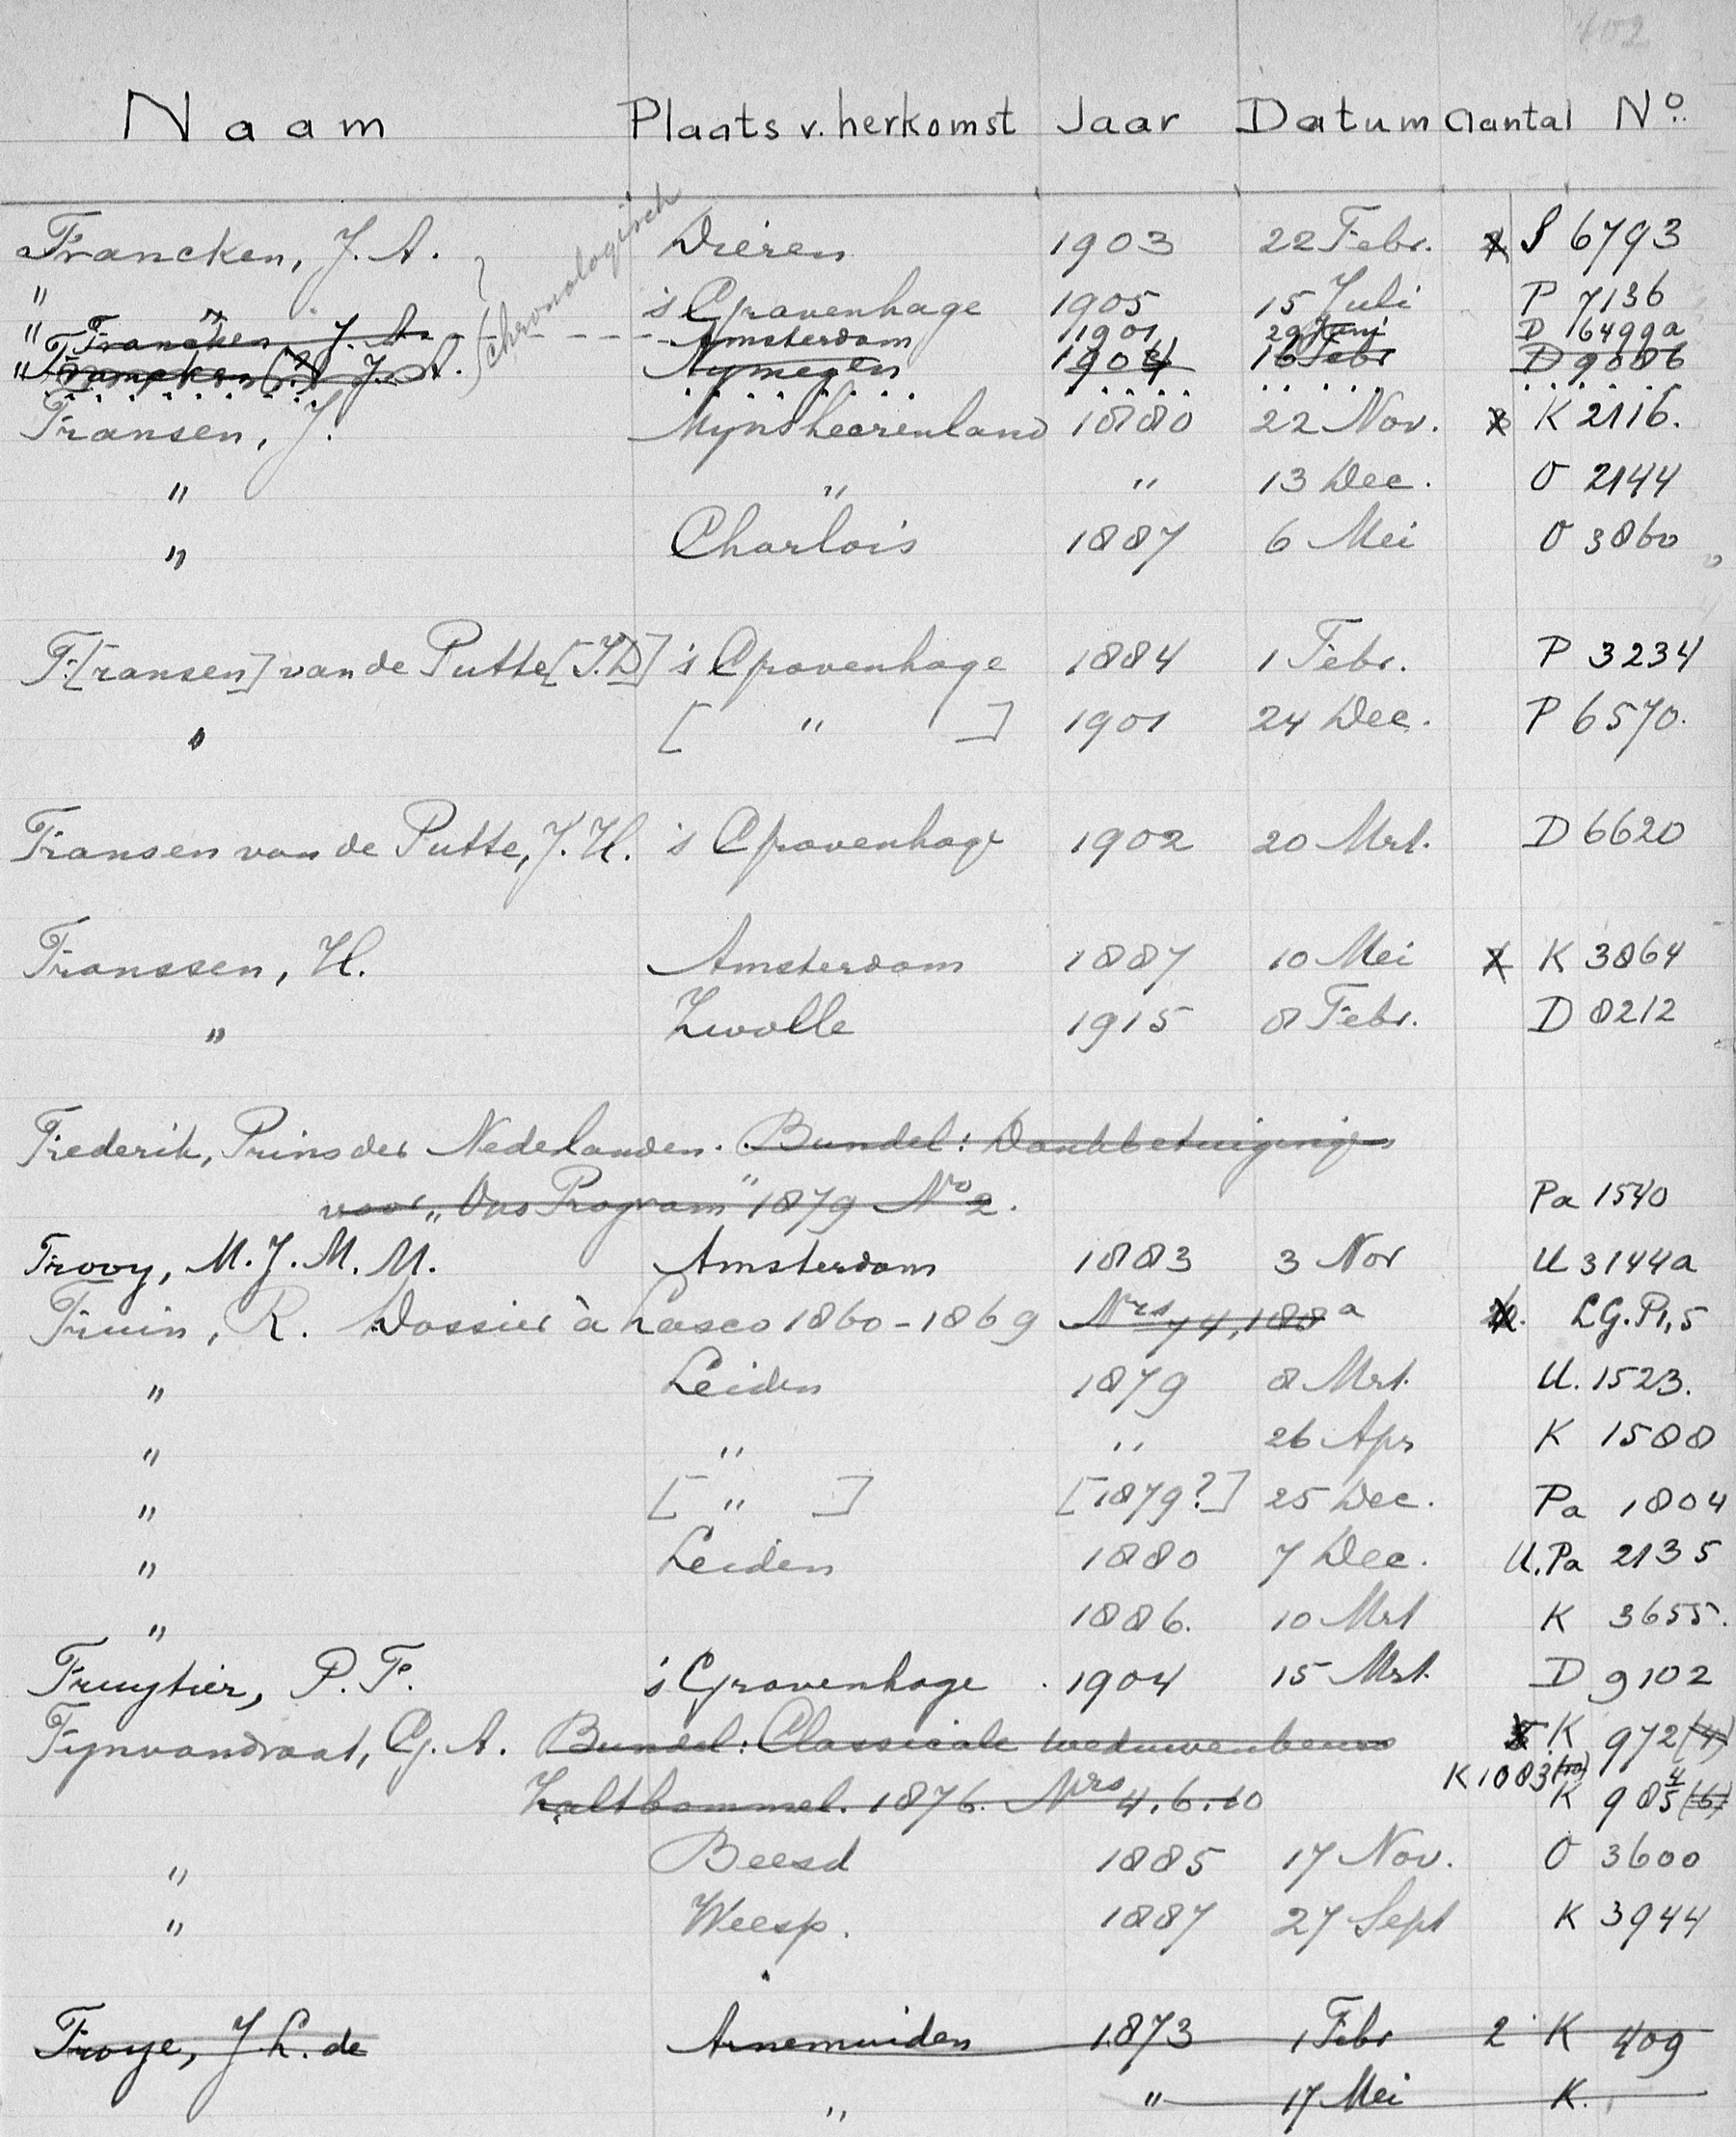 102
Naam Plaats v. herkomst Jaar Datum Aantal No.
Francken, J. A. Dieren 1903 22 Febr. S 6793
chronologisch
" 's Gravenhage 1905 15 Juli P 7136
" Francken, J. A. Amsterdam 1901 29 Juni D 6499a
" Francken (?) J. A. Nymegen 1904 16 Febr D 9086
Fransen, J. Mynsheerenland 1880 22 Nov. K 2116.
" " " 13 Dec. O 2144
" Charlois 1887 6 Mei O 3860
F.[ransen] van de Putte [I.D] 's Gravenhage 1884 1 Febr. P 3234
" [ " ] 1901 24 Dec. P 6570.
Fransen van de Putte, J. H. 's Gravenhage 1902 20 Mrt. D 6620
Franssen, H. Amsterdam 1887 10 Mei K 3864
" Zwolle 1915 8 Febr. D 8212
Frederik, Prins der Nederlanden. Bundel: Dankbetuigingen
voor „Ons Program" 1879 No 2. Pa 1540
Frooy, M. J. M. M. Amsterdam 1883 3 Nov U 3144a
Fruin, R. Dossier à Lasco 1860-1869 Nrs 74, 188a LG. Pl, 5
" Leiden 1879 8 Mrt. U. 1523.
" " " 26 Apr K 1588
" [ " ] [1879?] 25 Dec. Pa 1804
" Leiden 1880 7 Dec. U. Pa 2135
" 1886. 10 Mrt K 3655.
Fruytier, P. F. 's Gravenhage . 1904 15 Mrt. D 9102
Fynvandraat, G. A. Bundel: Classicale weduwenbeurs K 972 (4)
K 1083 (10)
Zaltbommel. 1876. Nrs 4. 6. 10 K 985 (6)
" Beesd 1885 17 Nov. O 3600
" Weesp. 1887 27 Sept K 3944
Froye, J. L. de Arnemuiden 1873 1 Febr 2 K 409
" " 17 Mei K.